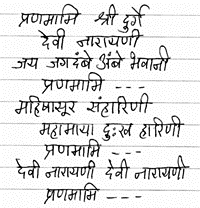 प्रणमामि श्री दुर्गे
देवी नारायणी
जय जगदंबे अंबे भवानी
प्रणमामि ---
महिषासूर संहारिणी
महामाया दुःख हारिणी
प्रणमामि ---
देवी नारायणी देवी नारायणी
प्रणमामि ---